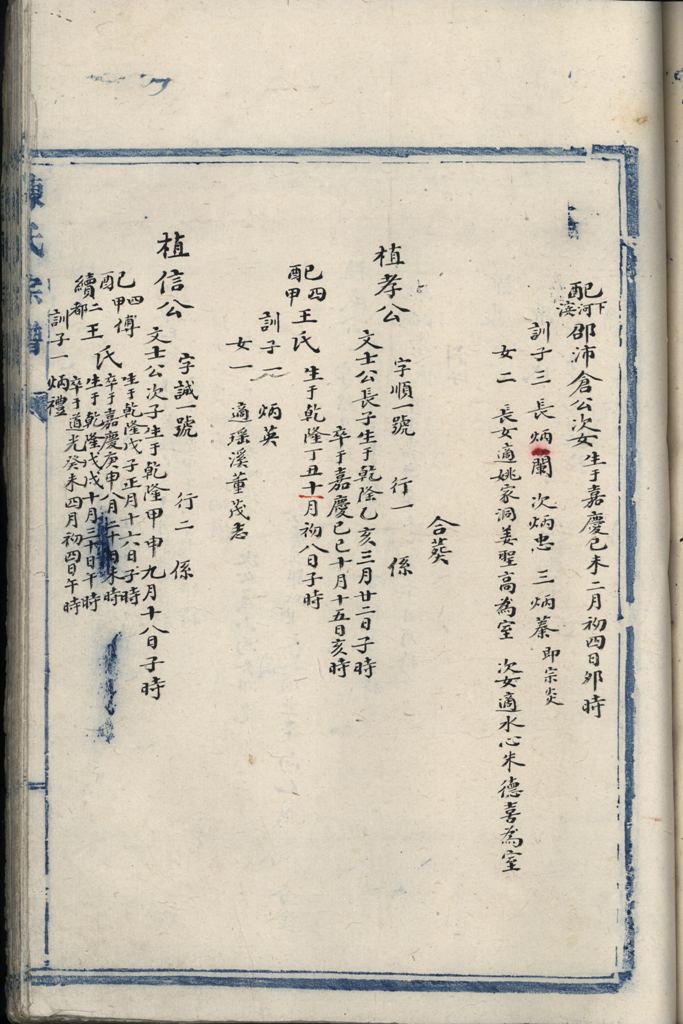 配下河濱邵沛倉公次女生于嘉慶己未二月初四日卯時
訓子三 長炳蘭 次炳忠 三炳蓁即宗炎
女二 長女適姚家洞姜聖高為室 次女適水心朱德喜為室
合葬
植孝公 字順一號 行一 係
文士公長子生于乾隆乙亥三月廿二日子時
卒于嘉慶己巳十月十五日亥時
配四甲王氏 生于乾隆丁丑十一月初八日子時
訓子一 炳英
女一 適瑶溪董茂志
植信公 字誠一號 行二 係
文士公次子生于乾隆甲申九月十八日子時
配四甲傅氏 生于乾隆戊子正月十六日子時
卒于嘉慶庚申八月二十日未時
續二都王氏 生于乾隆戊戌十月三十日午時
卒于道光癸未四月初四日午時
訓子一 炳禮
陳氏宗譜